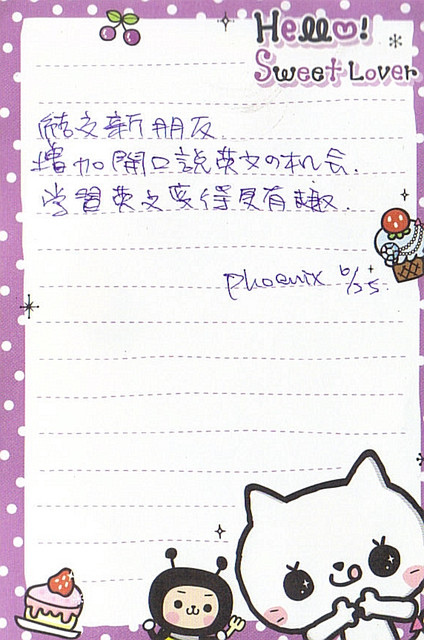 Hello!
Sweet Lover
結交新朋友.
增加開口說英文の机会.
学習英文变得更有趣.
Phoenix 6/25.